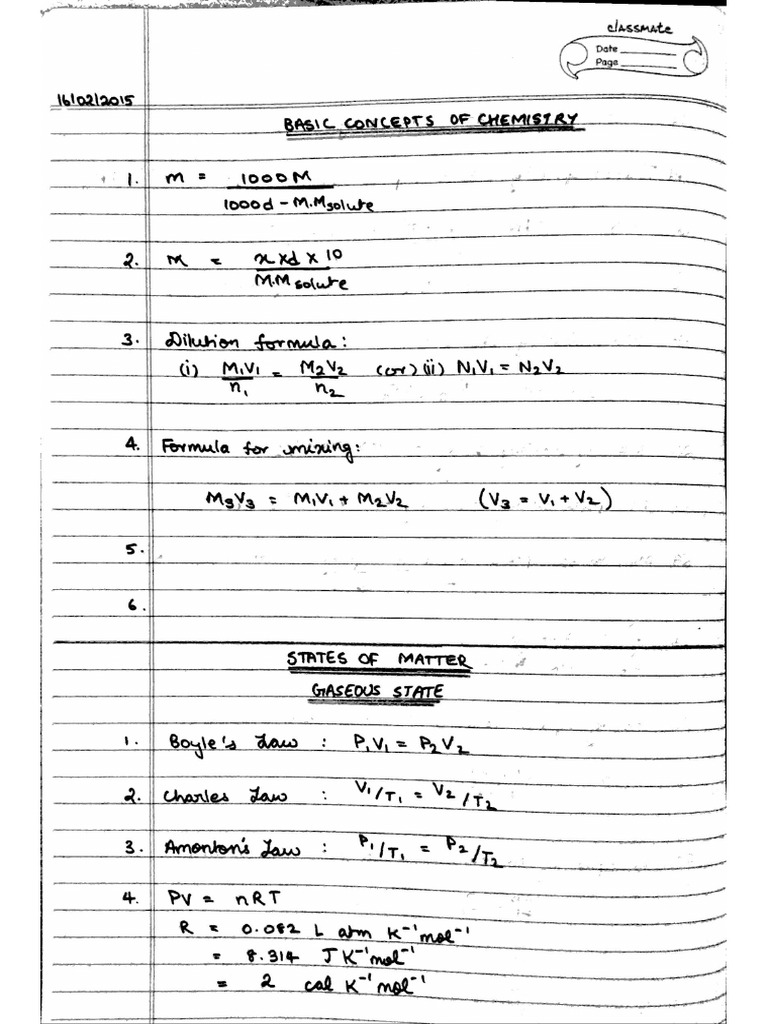 classmate
Date
Page
16/02/2015
BASIC CONCEPTS OF CHEMISTRY
1. m = 1000M / 1000d - M.Msolute
2. M = x x d x 10 / M.M solute
3. Dilution formula:
(i) M₁V₁/n₁ = M₂V₂/n₂ (or) (ii) N₁V₁ = N₂V₂
4. Formula for mixing:
M₃V₃ = M₁V₁ + M₂V₂ (V₃ = V₁ + V₂)
5.
6.
STATES OF MATTER
GASEOUS STATE
1. Boyle's Law : P₁V₁ = P₂V₂
2. Charles Law : V₁/T₁ = V₂/T₂
3. Amonton's Law : P₁/T₁ = P₂/T₂
4. PV = nRT
R = 0.082 L atm K⁻¹mol⁻¹
= 8.314 JK⁻¹mol⁻¹
= 2 cal K⁻¹mol⁻¹